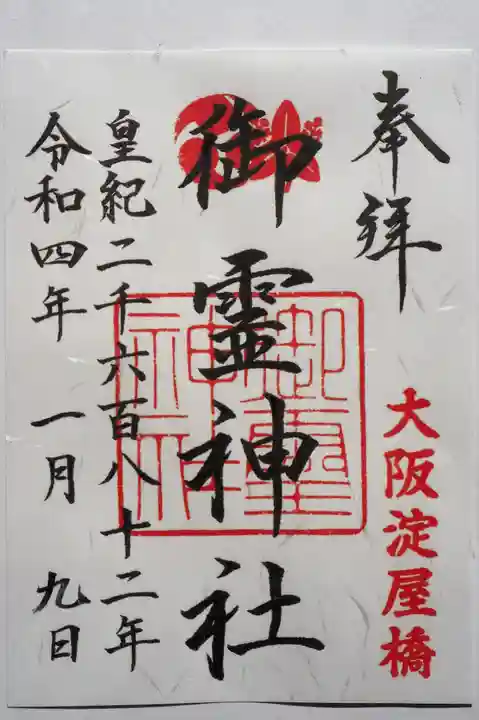 奉拝
大阪淀屋橋
御霊神社
御霊神社
皇紀二千六百八十二年
令和四年 一月 九日